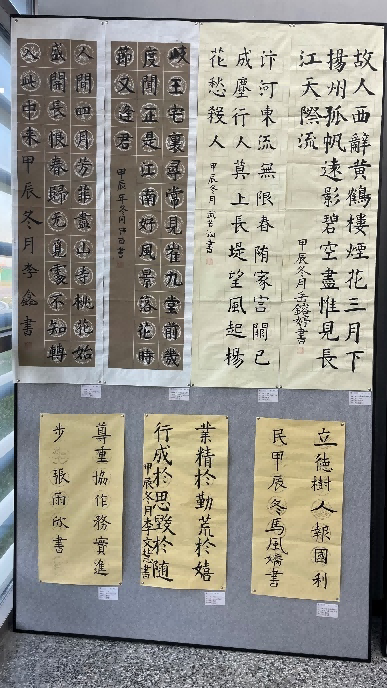 故人西辭黃鶴樓煙花三月下
揚州孤帆遠影碧空盡惟見長
江天際流
甲辰冬月
汴河東流無限春隋家宮闕已
成塵行人莫上長堤望風起楊
花愁殺人
甲辰冬月
岐王宅裏尋常見崔九堂前幾
度聞正是江南好風景落花時
節又逢君
甲辰年冬月
人間四月芳菲盡山寺桃花始
盛開長恨春歸无覓處不知轉
入此中來甲辰冬月李鑫書
立德樹人報國利
民甲辰冬馬風端書
業精於勤荒於嬉
行成於思毀於隨
甲辰冬月李文慧書
尊重協作務實進
步張雨欣書